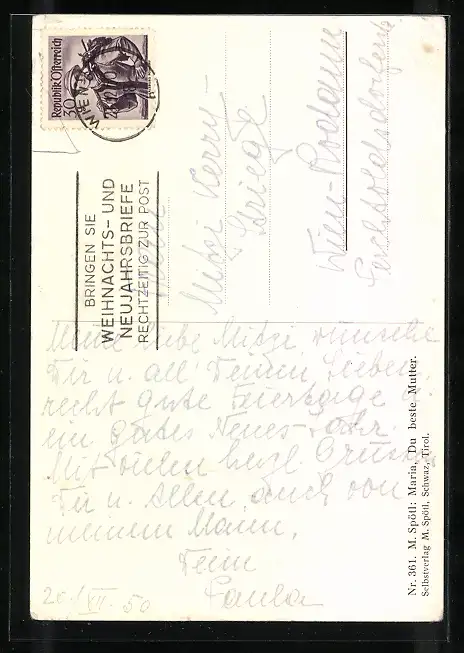 Republik Österreich
30
WIEN
BRINGEN SIE
WEIHNACHTS- UND
NEUJAHRSBRIEFE
RECHTZEITIG ZUR POST
Mitzi
Wien-Rodaun
Perchtoldsdorferstr
Meine liebe Mitzi wünsche
Dir u. all Deinen Lieben
recht gute Feiertage u.
ein gutes Neues Jahr.
Mit vielen herzl. Grüssen
Dir u. Allen, auch von
meinem Mann,
Deine
Paula
20./XII. 50
Nr. 361. M. Spötl: Maria, Du beste Mutter.
Selbstverlag M. Spötl, Schwaz, Tirol.